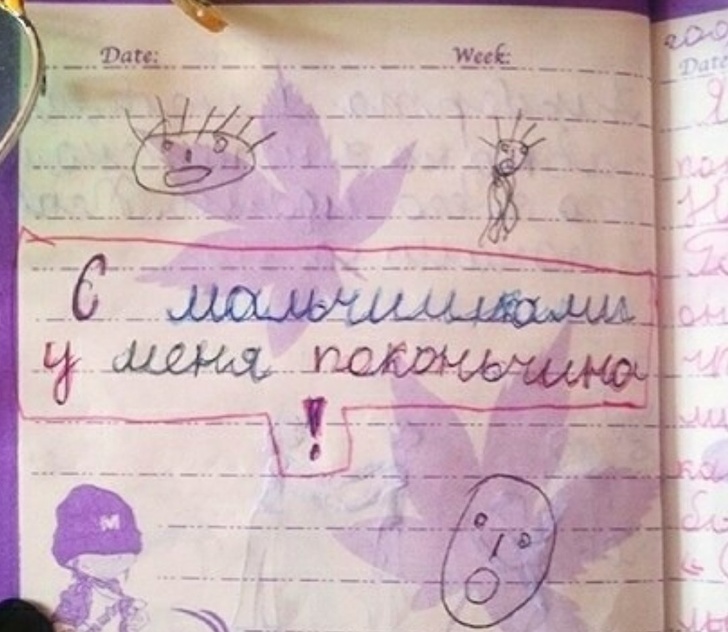 Date: Week:
С мальчишками
у меня поконьчино
!
M
Date